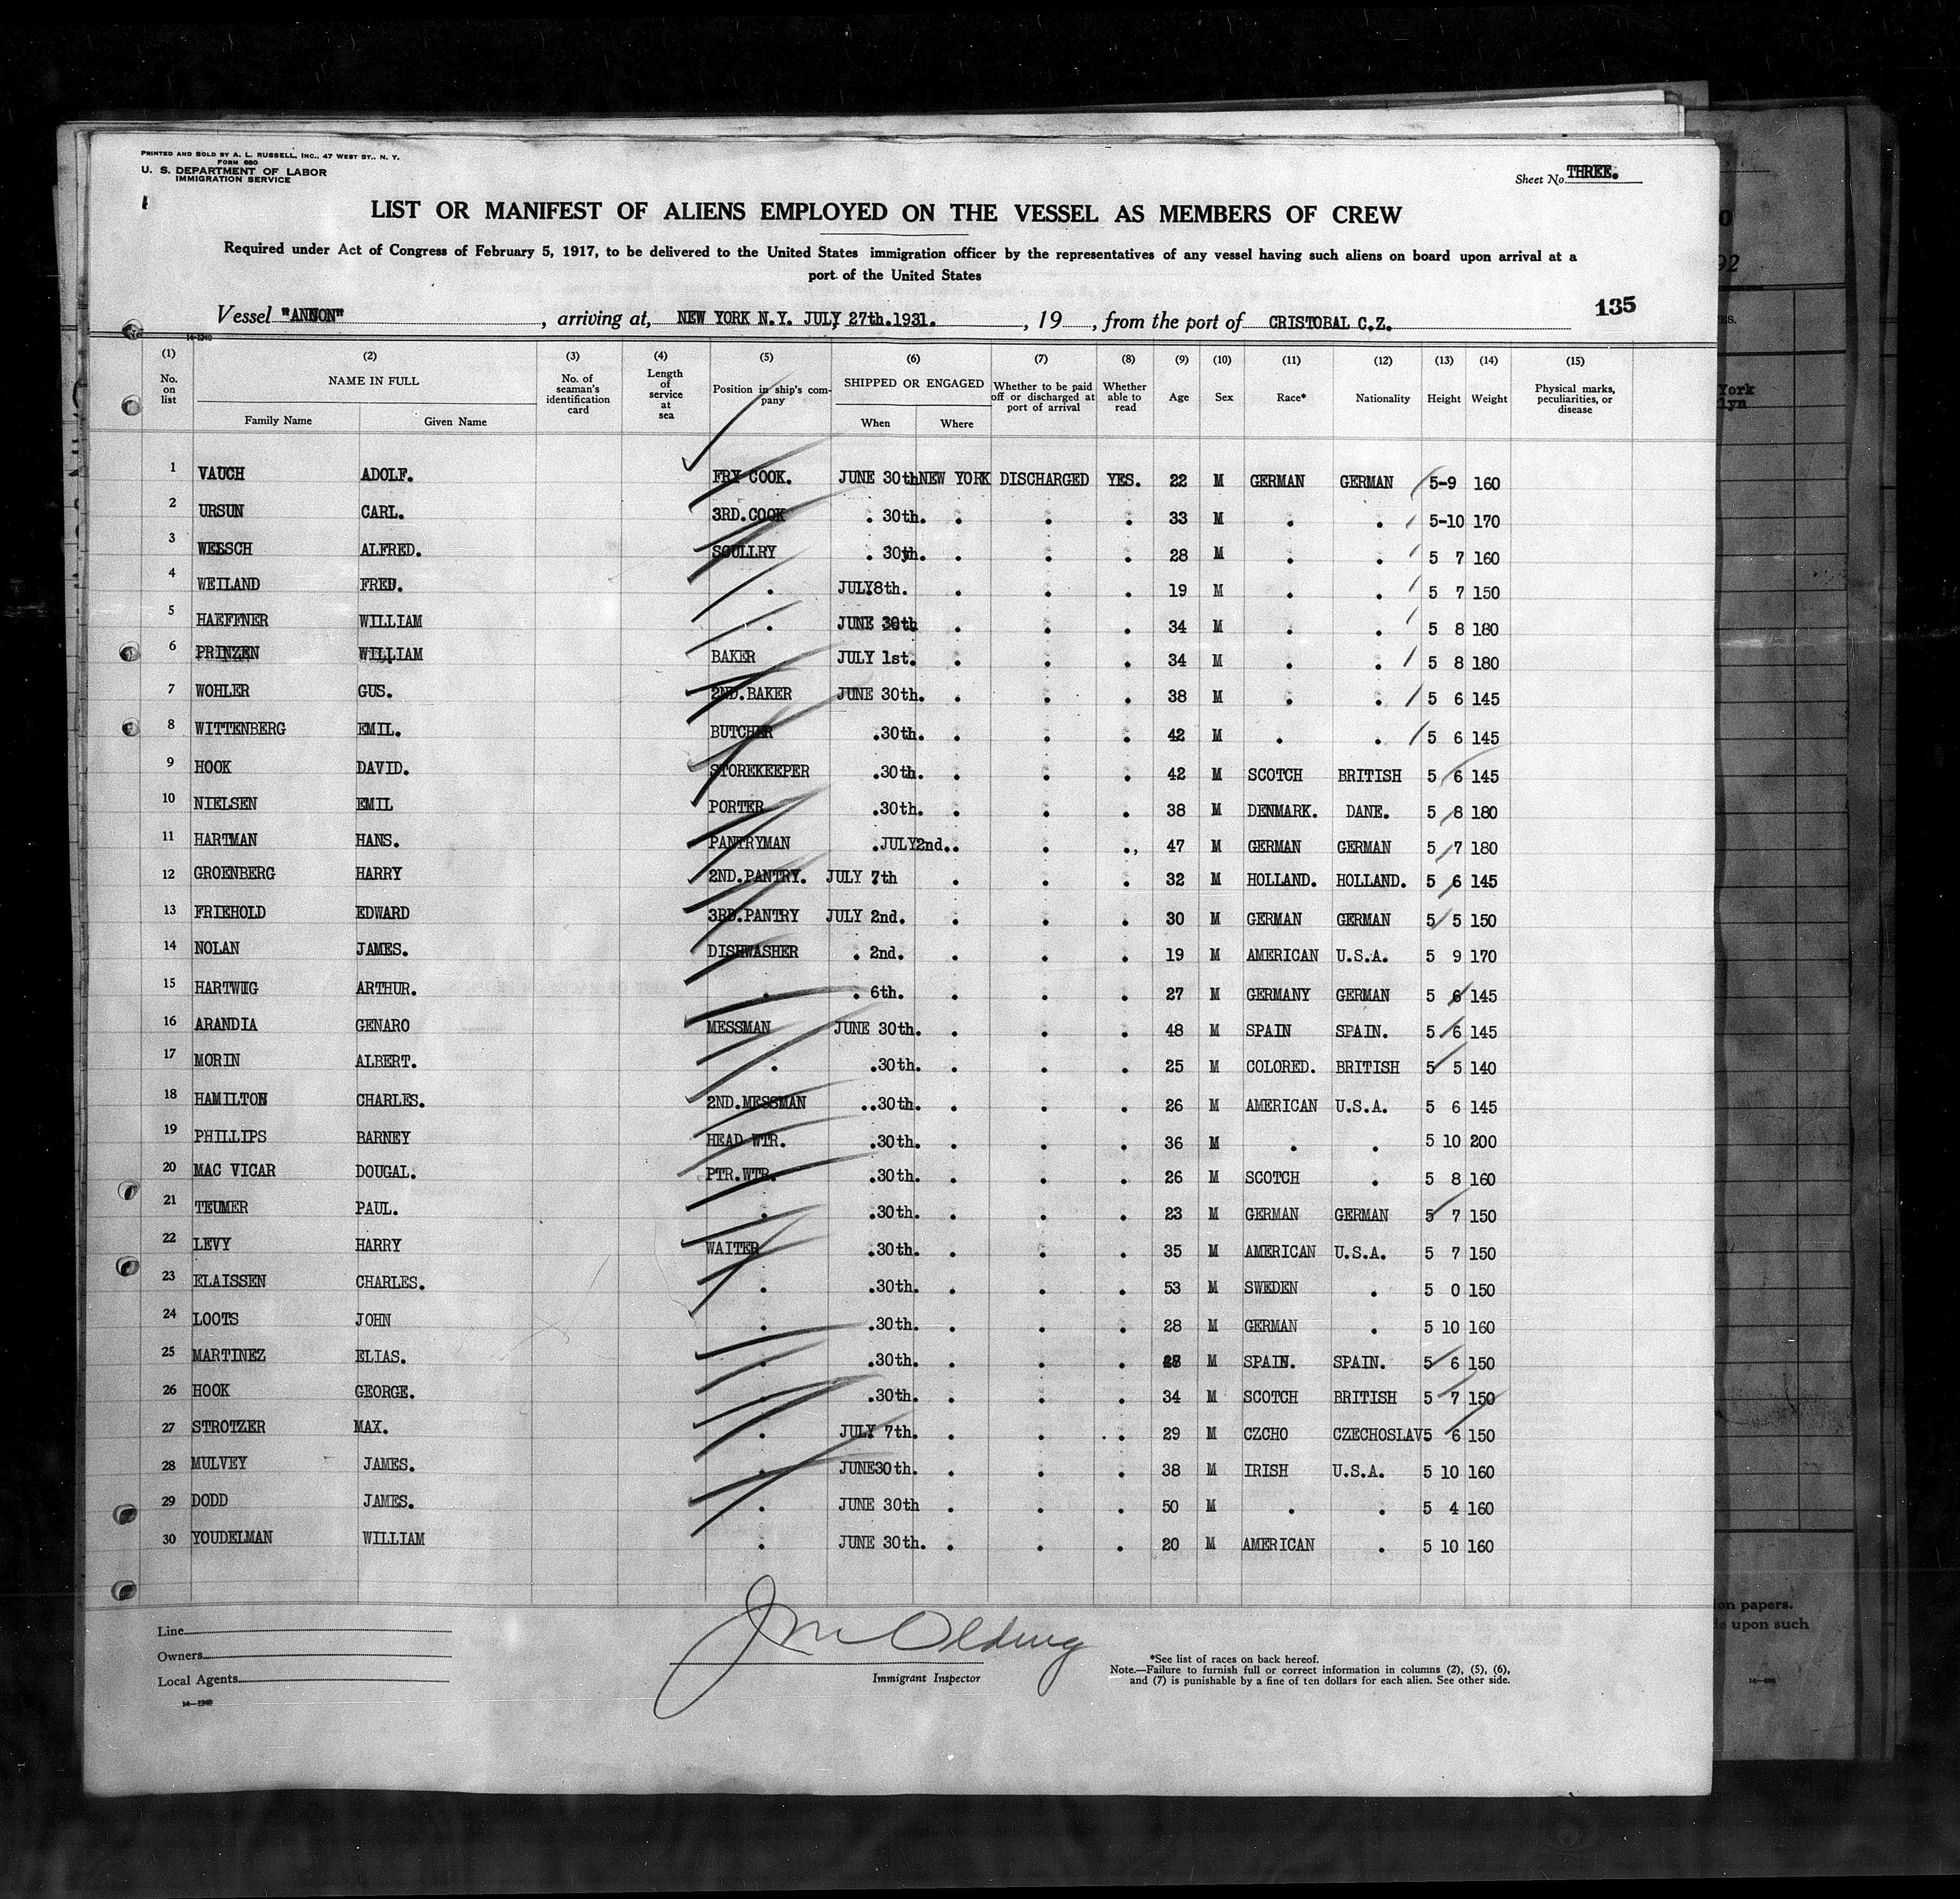 PRINTED AND SOLD BY A. L. RUSSELL, INC., 47 WEST ST., N. Y.
FORM 680
U. S. DEPARTMENT OF LABOR
IMMIGRATION SERVICE
Sheet No. THREE.
LIST OR MANIFEST OF ALIENS EMPLOYED ON THE VESSEL AS MEMBERS OF CREW
Required under Act of Congress of February 5, 1917, to be delivered to the United States immigration officer by the representatives of any vessel having such aliens on board upon arrival at a
port of the United States
135
Vessel "ANNON", arriving at, NEW YORK N.Y. JULY 27th.1931., 19, from the port of CRISTOBAL C.Z.
14-1240
(1) (2) (3) (4) (5) (6) (7) (8) (9) (10) (11) (12) (13) (14) (15)
No. on list NAME IN FULL Family Name Given Name No. of seaman's identification card Length of service at sea Position in ship's company SHIPPED OR ENGAGED When Where Whether to be paid off or discharged at port of arrival Whether able to read Age Sex Race* Nationality Height Weight Physical marks, peculiarities, or disease
1 VAUCH ADOLF. FRY COOK. JUNE 30th NEW YORK DISCHARGED YES. 22 M GERMAN GERMAN 5-9 160
2 URSUN CARL. 3RD.COOK . 30th. . . . 33 M . . 5-10 170
3 WESSCH ALFRED. SCULLRY . 30th. . . . 28 M . . 5 7 160
4 WEILAND FRED. . JULY8th. . . . 19 M . . 5 7 150
5 HAEFFNER WILLIAM . JUNE 30th . . . 34 M . . 5 8 180
6 PRINZEN WILLIAM BAKER JULY 1st. . . . 34 M . . 5 8 180
7 WOHLER GUS. 2ND.BAKER JUNE 30th. . . . 38 M . . 5 6 145
8 WITTENBERG EMIL. BUTCHER .30th. . . . 42 M . . 5 6 145
9 HOOK DAVID. STOREKEEPER .30th. . . . 42 M SCOTCH BRITISH 5 6 145
10 NIELSEN EMIL PORTER .30th. . . . 38 M DENMARK. DANE. 5 8 180
11 HARTMAN HANS. PANTRYMAN .JULY2nd.. . ., 47 M GERMAN GERMAN 5 7 180
12 GROENBERG HARRY 2ND.PANTRY. JULY 7th . . . 32 M HOLLAND. HOLLAND. 5 6 145
13 FRIEHOLD EDWARD 3RD.PANTRY JULY 2nd. . . . 30 M GERMAN GERMAN 5 5 150
14 NOLAN JAMES. DISHWASHER . 2nd. . . . 19 M AMERICAN U.S.A. 5 9 170
15 HARTWIG ARTHUR. . . 6th. . . . 27 M GERMANY GERMAN 5 6 145
16 ARANDIA GENARO MESSMAN JUNE 30th. . . . 48 M SPAIN SPAIN. 5 6 145
17 MORIN ALBERT. . .30th. . . . 25 M COLORED. BRITISH 5 5 140
18 HAMILTON CHARLES. 2ND.MESSMAN ..30th. . . . 26 M AMERICAN U.S.A. 5 6 145
19 PHILLIPS BARNEY HEAD WTR. .30th. . . . 36 M . . 5 10 200
20 MAC VICAR DOUGAL. PTR.WTR. .30th. . . . 26 M SCOTCH . 5 8 160
21 TEUMER PAUL. . .30th. . . . 23 M GERMAN GERMAN 5 7 150
22 LEVY HARRY WAITER .30th. . . . 35 M AMERICAN U.S.A. 5 7 150
23 ELAISSEN CHARLES. . .30th. . . . 53 M SWEDEN . 5 0 150
24 LOOTS JOHN . .30th. . . . 28 M GERMAN . 5 10 160
25 MARTINEZ ELIAS. . .30th. . . . M SPAIN. SPAIN. 5 6 150
26 HOOK GEORGE. . .30th. . . . 34 M SCOTCH BRITISH 5 7 150
27 STROTZER MAX. . JULY 7th. . . . . 29 M CZCHO CZECHOSLAV 5 6 150
28 MULVEY JAMES. . JUNE30th. . . . 38 M IRISH U.S.A. 5 10 160
29 DODD JAMES. . JUNE 30th . . . 50 M . . 5 4 160
30 YOUDELMAN WILLIAM . JUNE 30th. . . . 20 M AMERICAN . 5 10 160
Line
Owners
Local Agents
14-1240
J M Olding
Immigrant Inspector
*See list of races on back hereof.
Note.—Failure to furnish full or correct information in columns (2), (5), (6),
and (7) is punishable by a fine of ten dollars for each alien. See other side.
92
York
lyn
ion papers.
upon such